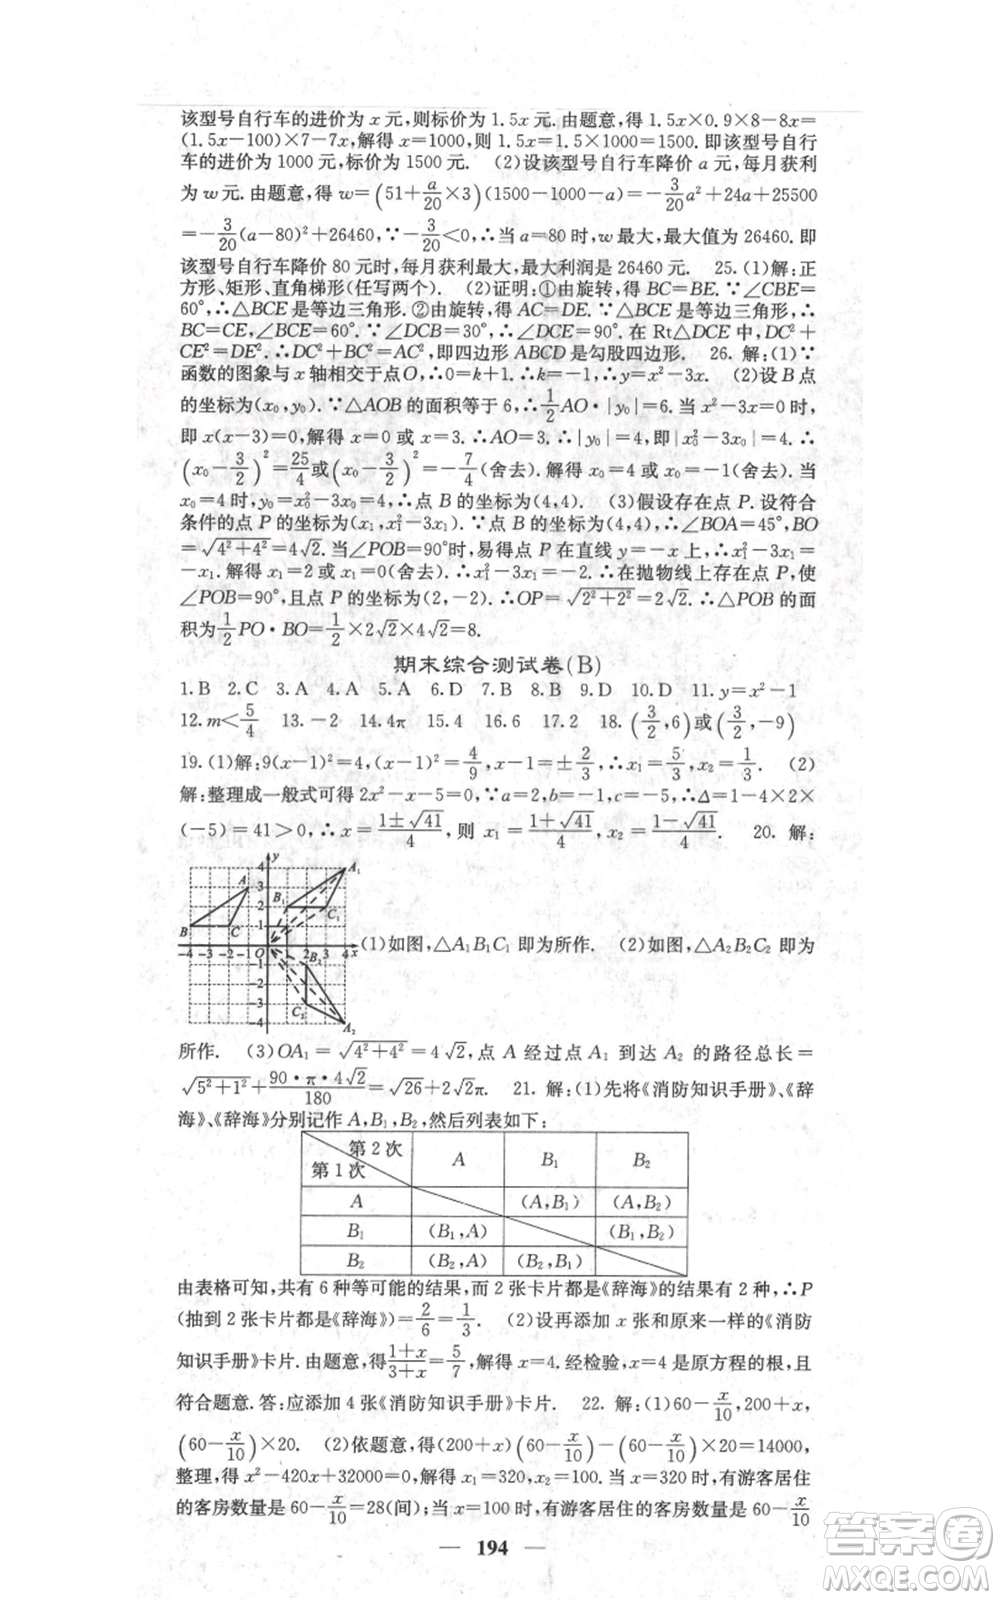 该型号自行车的进价为 x 元,则标价为 1.5x 元.由题意,得 1.5x×0.9×8-8x=
(1.5x-100)×7-7x,解得 x=1000,则 1.5x=1.5×1000=1500.即该型号自行
车的进价为 1000 元,标价为 1500 元. (2)设该型号自行车降价 a 元,每月获利
为 w 元.由题意,得 w=(51+a/20×3)(1500-1000-a)=-3/20a²+24a+25500
=-3/20(a-80)²+26460,∵-3/20<0,∴当 a=80 时,w 最大,最大值为 26460.即
该型号自行车降价 80 元时,每月获利最大,最大利润是 26460 元. 25.(1)解:正
方形、矩形、直角梯形(任写两个). (2)证明:①由旋转,得 BC=BE.∵∠CBE=
60°,∴△BCE 是等边三角形.②由旋转,得 AC=DE.∵△BCE 是等边三角形,∴
BC=CE,∠BCE=60°.∵∠DCB=30°,∴∠DCE=90°.在 Rt△DCE 中,DC²+
CE²=DE²,∴DC²+BC²=AC²,即四边形 ABCD 是勾股四边形. 26.解:(1)∵
函数的图象与 x 轴相交于点O,∴0=k+1,∴k=-1,∴y=x²-3x. (2)设 B 点
的坐标为(x₀,y₀).∵△AOB 的面积等于 6,∴1/2AO·|y₀|=6.当 x²-3x=0 时,
即 x(x-3)=0,解得 x=0 或 x=3.∴AO=3.∴|y₀|=4,即|x₀²-3x₀|=4.∴
(x₀-3/2)²=25/4或(x₀-3/2)²=-7/4(舍去).解得 x₀=4 或 x₀=-1(舍去).当
x₀=4 时,y₀=x₀²-3x₀=4,∴点 B 的坐标为(4,4). (3)假设存在点 P.设符合
条件的点 P 的坐标为(x₁,x₁²-3x₁).∵点 B 的坐标为(4,4),∴∠BOA=45°,BO
=√(4²+4²)=4√2.当∠POB=90°时,易得点 P 在直线 y=-x 上,∴x₁²-3x₁=
-x₁.解得 x₁=2 或 x₁=0(舍去).∴x₁²-3x₁=-2.∴在抛物线上存在点 P,使
∠POB=90°,且点 P 的坐标为(2,-2).∴OP=√(2²+2²)=2√2.∴△POB 的面
积为1/2PO·BO=1/2×2√2×4√2=8.
期末综合测试卷(B)
1.B 2.C 3.A 4.A 5.A 6.D 7.B 8.B 9.D 10.D 11.y=x²-1
12.m<5/4 13.-2 14.4π 15.4 16.6 17.2 18.(3/2,6)或(3/2,-9)
19.(1)解:9(x-1)²=4,(x-1)²=4/9,x-1=±2/3,∴x₁=5/3,x₂=1/3. (2)
解:整理成一般式可得 2x²-x-5=0,∵a=2,b=-1,c=-5,∴Δ=1-4×2×
(-5)=41>0,∴x=(1±√41)/4,则 x₁=(1+√41)/4,x₂=(1-√41)/4. 20.解:
(1)如图,△A₁B₁C₁ 即为所作. (2)如图,△A₂B₂C₂ 即为
所作. (3)OA₁=√(4²+4²)=4√2,点 A 经过点 A₁ 到达 A₂ 的路径总长=
√(5²+1²)+(90·π·4√2)/180=√26+2√2π. 21.解:(1)先将《消防知识手册》、《辞
海》、《辞海》分别记作 A,B₁,B₂,然后列表如下:
第 2 次 第 1 次 A B₁ B₂
A (A,B₁) (A,B₂)
B₁ (B₁,A) (B₁,B₂)
B₂ (B₂,A) (B₂,B₁)
由表格可知,共有 6 种等可能的结果,而 2 张卡片都是《辞海》的结果有 2 种,∴P
(抽到 2 张卡片都是《辞海》)=2/6=1/3. (2)设再添加 x 张和原来一样的《消防
知识手册》卡片.由题意,得(1+x)/(3+x)=5/7,解得 x=4.经检验,x=4 是原方程的根,且
符合题意.答:应添加 4 张《消防知识手册》卡片. 22.解:(1)60-x/10,200+x,
(60-x/10)×20. (2)依题意,得(200+x)(60-x/10)-(60-x/10)×20=14000,
整理,得 x²-420x+32000=0.解得 x₁=320,x₂=100.当 x=320 时,有游客居住
的客房数量是 60-x/10=28(间);当 x=100 时,有游客居住的客房数量是 60-x/10
— 194 —
答案圈
MXQE.COM